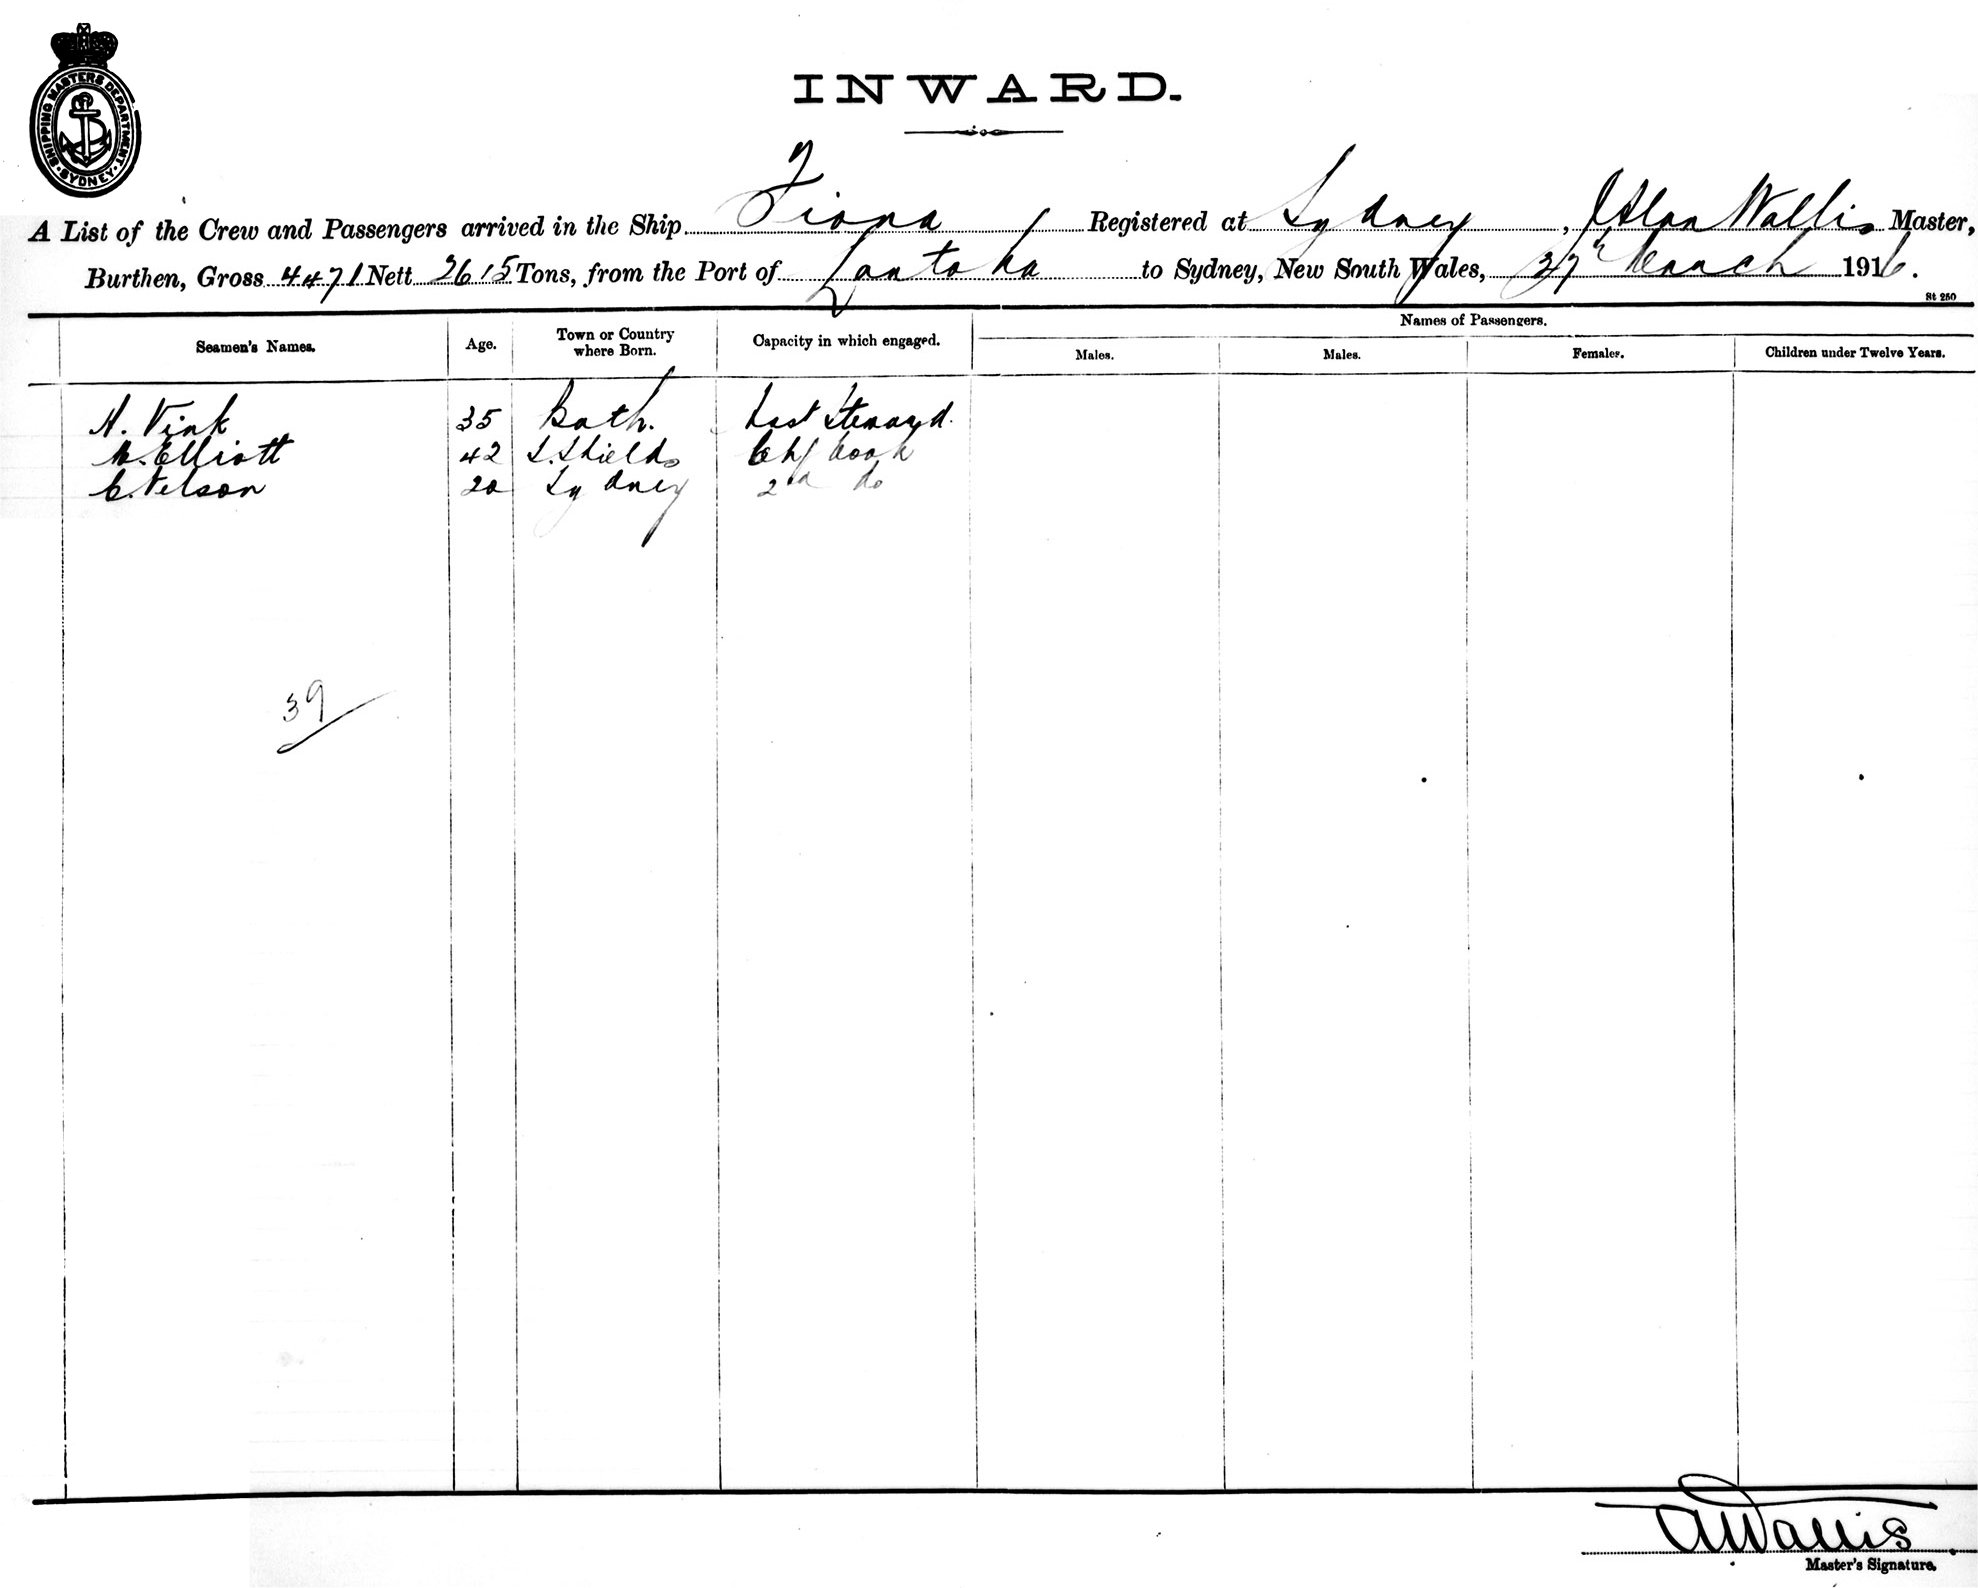 SHIPPING MASTERS DEPARTMENT · SYDNEY ·
INWARD.
A List of the Crew and Passengers arrived in the Ship Fiona Registered at Sydney, Allan Wallis Master,
Burthen, Gross 4471 Nett 2615 Tons, from the Port of Lautoka to Sydney, New South Wales, 27 March 1916.
St 250
Seamen's Names. Age. Town or Country where Born. Capacity in which engaged. Names of Passengers.
Males. Males. Females. Children under Twelve Years.
H. Vink 35 Bath. Steward.
Elliott 42 S. Shields Chf Cook
C. Nelson 20 Sydney 2nd do
39
AWallis
Master's Signature.